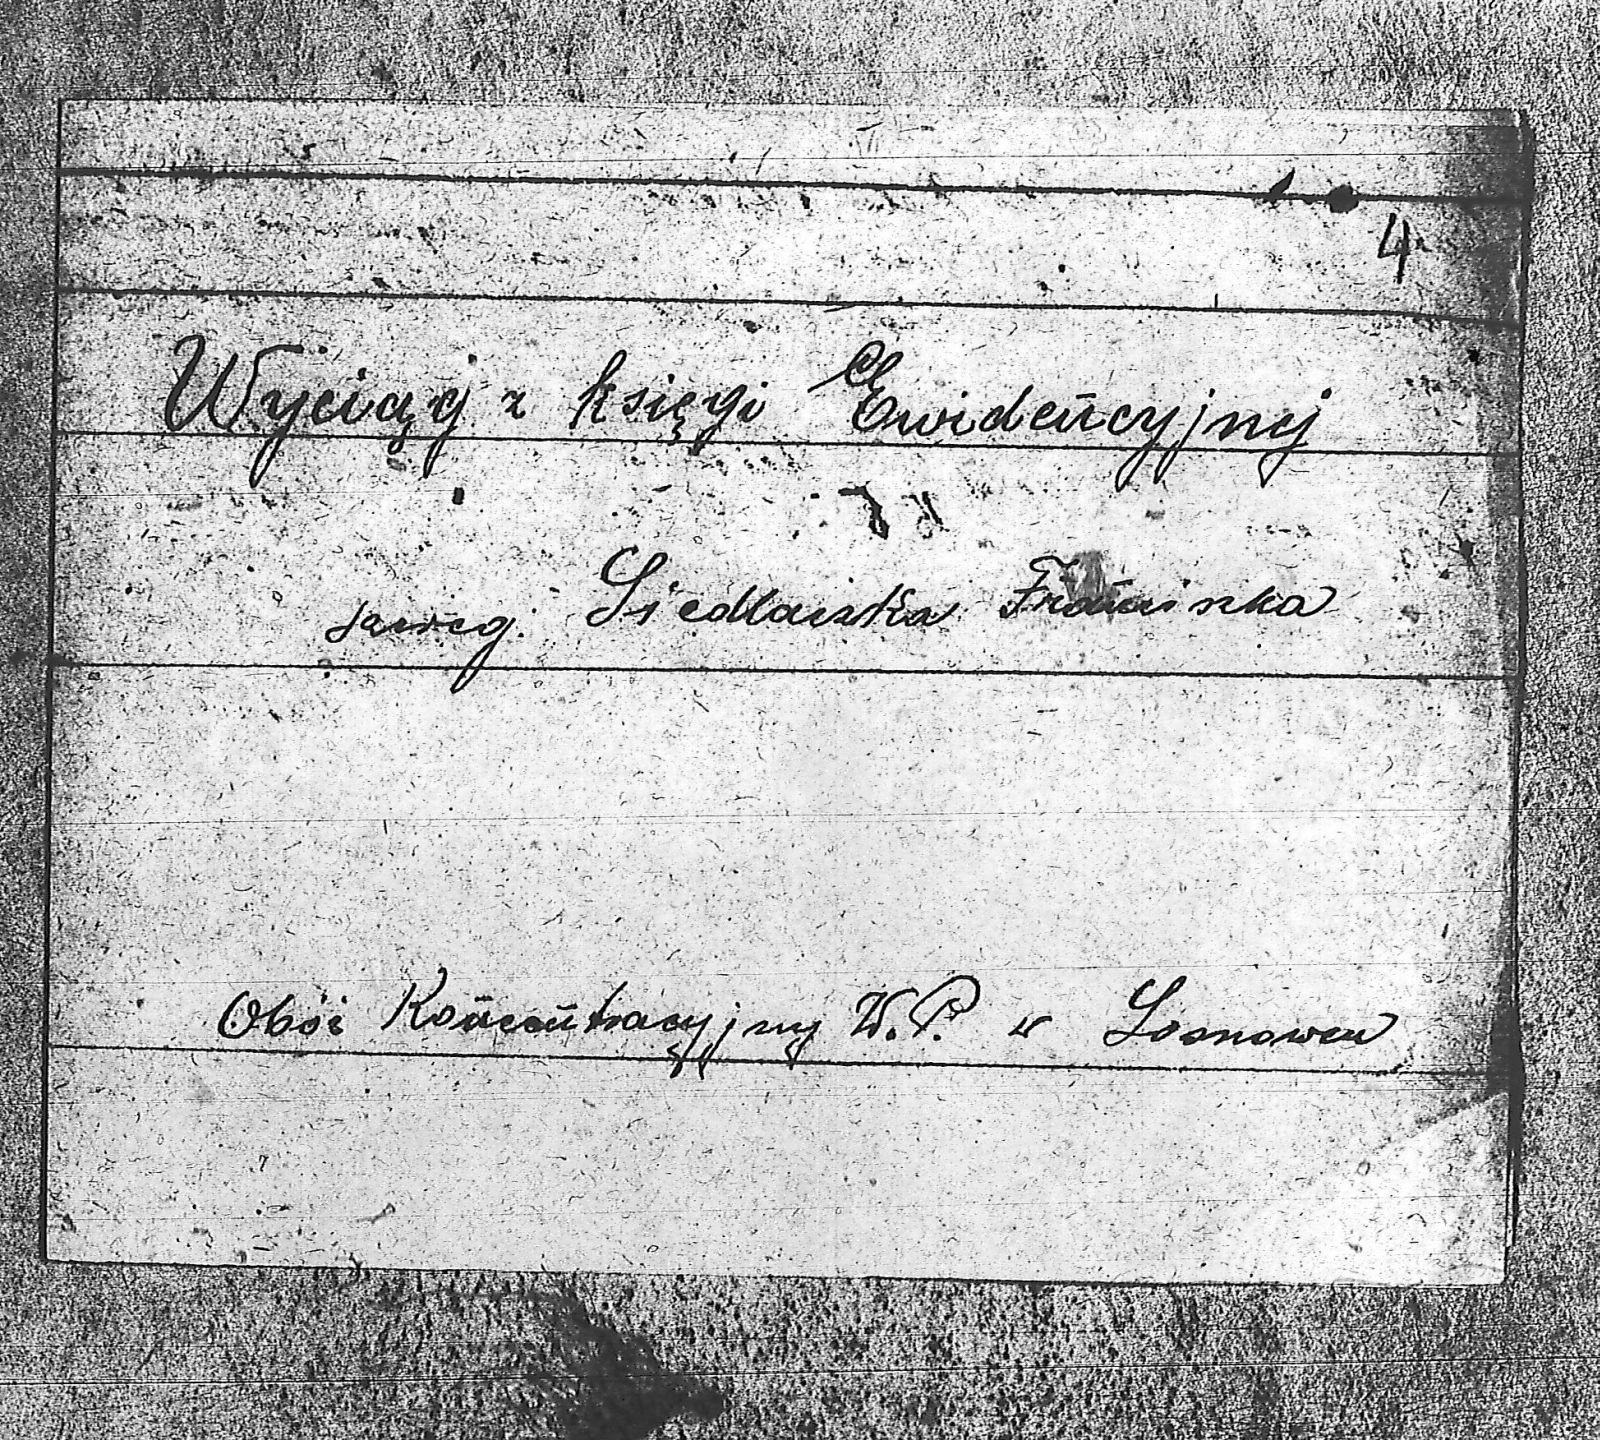 4
Wyciąg z księgi Ewidencyjnej
szereg. Siedlaczka Franciszka
Obóz Koncentracyjny W.P. w Sosnowcu